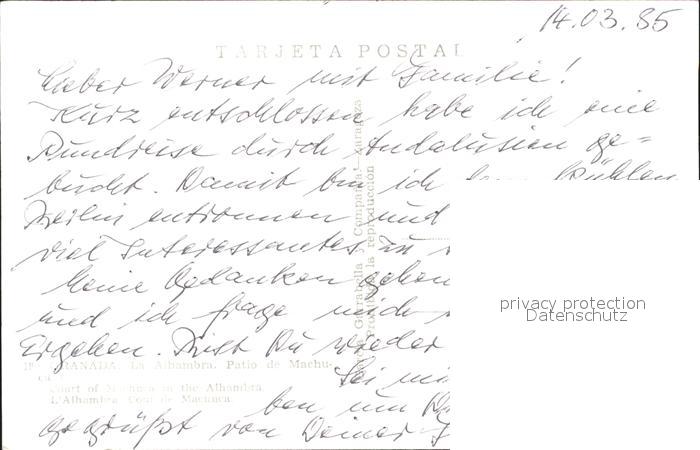 14.03.85
TARJETA POSTAL
Lieber Werner mit Familie!
Kurz entschlossen habe ich eine
Rundreise durch Andalusien ge=
bucht. Damit bin ich dem kühlen
Berlin entronnen und
viel Interessantes zu
Meine Gedanken gehen
und ich frage mich
Ergehen. Bist Du wieder
Sei mi
ben um
gegrüßt von Deiner
GRANADA. La Alhambra. Patio de Machu-
ca
Court of Machuca in the Alhambra.
L'Alhambra. Cour de Machuca.
Garrabella y Compañía - Zaragoza
Prohibida la reproducción
privacy protection
Datenschutz